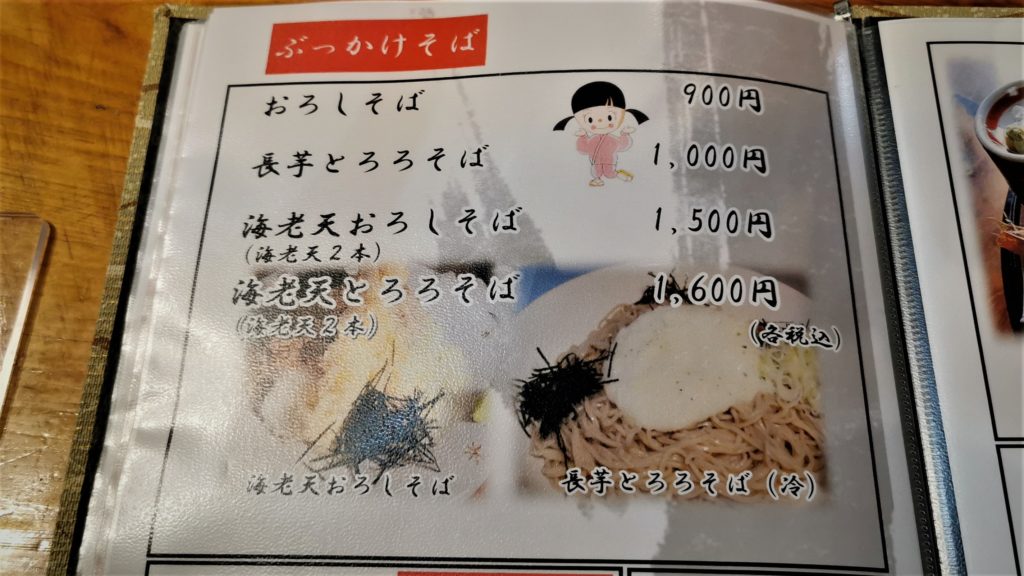 ぶっかけそば
おろしそば 900円
長芋とろろそば 1,000円
海老天おろしそば 1,500円
(海老天2本)
海老天とろろそば 1,600円
(海老天2本)
(各税込)
海老天おろしそば
長芋とろろそば (冷)